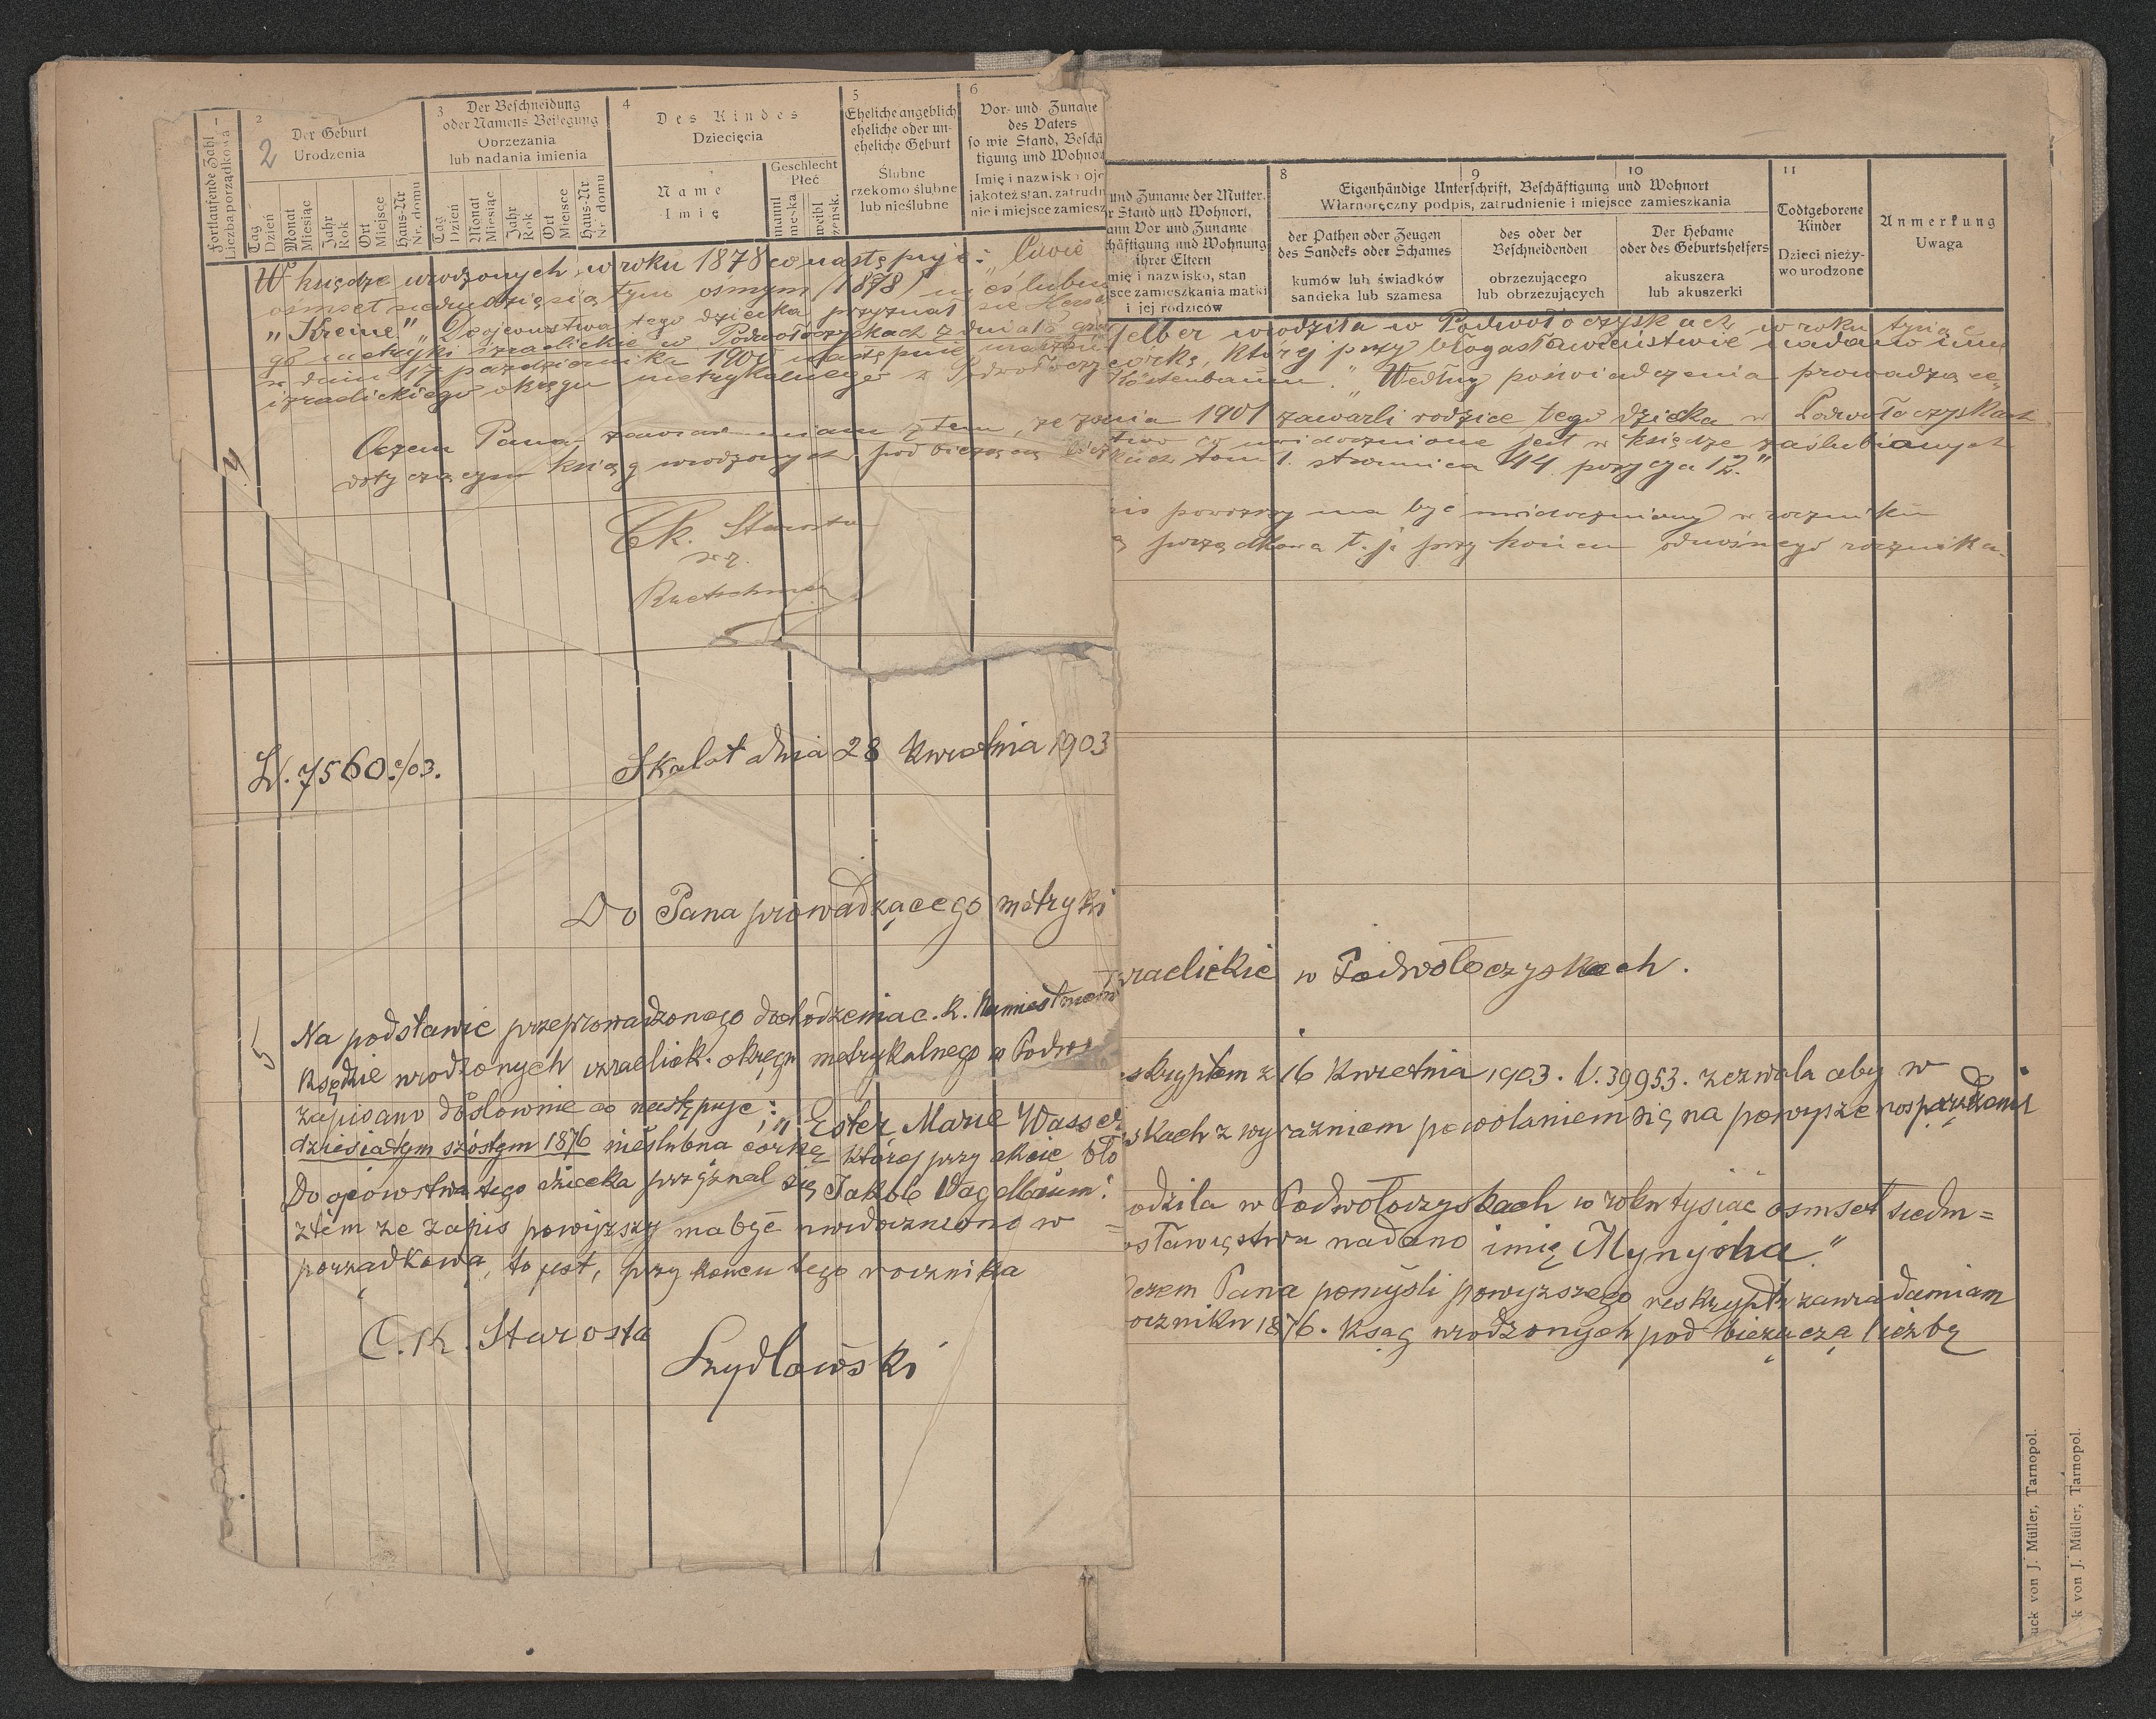 1
Fortlaufende Zahl
Liczba porządkowa
2
2
Der Geburt
Urodzenia
Tag
Dzień
Monat
Miesiąc
Jahr
Rok
Ort
Miejsce
Haus-Nr
Nr. domu
3
Der Beschneidung
oder Namens Beilegung
Obrzezania
lub nadania imienia
Tag
Dzień
Monat
Miesiąc
Jahr
Rok
Ort
Miejsce
Haus-Nr
Nr. domu
4
Des Kindes
Dziecięcia
Name
Imię
Geschlecht
Płeć
männl
męska
weibl
żeńsk.
5
Eheliche angeblich
eheliche oder un-
eheliche Geburt
Ślubne
rzekomo ślubne
lub nieślubne
6
Vor- und Zuname
des Vaters
so wie Stand, Beschä
tigung und Wohnor
Imię i nazwisko ojc
jakoteż stan, zatrudn
nie i miejsce zamiesz
und Zuname der Mutter,
r Stand und Wohnort,
ann Vor und Zuname
häftigung und Wohnung
ihrer Eltern
mię i nazwisko, stan
jsce zamieszkania matki
i jej rodziców
8
9
10
Eigenhändige Unterschrift, Beschäftigung und Wohnort
Własnoręczny podpis, zatrudnienie i miejsce zamieszkania
der Pathen oder Zeugen
des Sandeks oder Schames
kumów lub świadków
sandeka lub szamesa
des oder der
Beschneidenden
obrzezującego
lub obrzezujących
Der Hebame
oder des Geburtshelfers
akuszera
lub akuszerki
11
Todtgeborene
Kinder
Dzieci nieży-
wo urodzone
Anmerkung
Uwaga
W księdze urodzonych w roku 1878 co następuje: "
felber urodziła w Podwołoczyskach w roku tysiąc
ośmset siedmdziesiątym osmym (1878) nieślubn
córkę, której przy błogosławieństwie nadano imię
"Kreine". Do ojcowstwa tego dziecka przyznał się
Köstenbaum." Według poświadczenia prowadzące
go metryki izraelickie w Podwołoczyskach z dnia
1901 zawarli rodzice tego dziecka w Podwołoczyskach
w dniu 17 października 1901 następnie
co uwidocznione jest w księdze zaślubionych
izraelickiego okręgu metrykalnego w Podwołoczy
skach tom 1. stronnica 44 pozycya 12."
4
O czem Pana zawiadamiam z tem, że zapis powyższy ma być uwidoczniony w roczniku
dotyczącym ksiąg urodzonych pod bieżącą liczb
ą porządkową t. j. przy końcu odnośnego rocznika.
C. k. Starosta
wz.
L. 7560/03.
Skałat dnia 28 Kwietnia 1903
Do Pana prowadzącego metryki
izraelickie w Podwołoczyskach.
5
Na podstawie przeprowadzonego dochodzenia c. k. Namiestnictw
eskryptem z 16 Kwietnia 1903. l. 39953. zezwala aby w
Księdze urodzonych izraelick. okręgu metrykalnego w Podwo
yskach z wyraźniem powołaniem się na powyższe rosporządzenie
zapisano dosłownie co następuje: "Ester Marie Wasser
odziła w Podwołoczyskach w roku tysiąc osmset siedm=
dziesiątym szóstym 1876 nieślubną córkę której przy akcie bło
osławięstwa nadano imię Mynysha."
Do ojcowstwa tego dziecka przyznał się Jakób Vagelbaum.
O czem Pana pomyśli powyższego reskryptu zawiadamiam
z tem ze zapis powyższy ma być uwidoczniono w
roczniku 1876. ksiąg urodzonych pod bieżączą liczbą
porządkową, to jest, przy koncu tego rocznika
C. K. Starosta
Szydłowski
uck von J. Müller, Tarnopol.
k von J. Müller, Tarnopol.